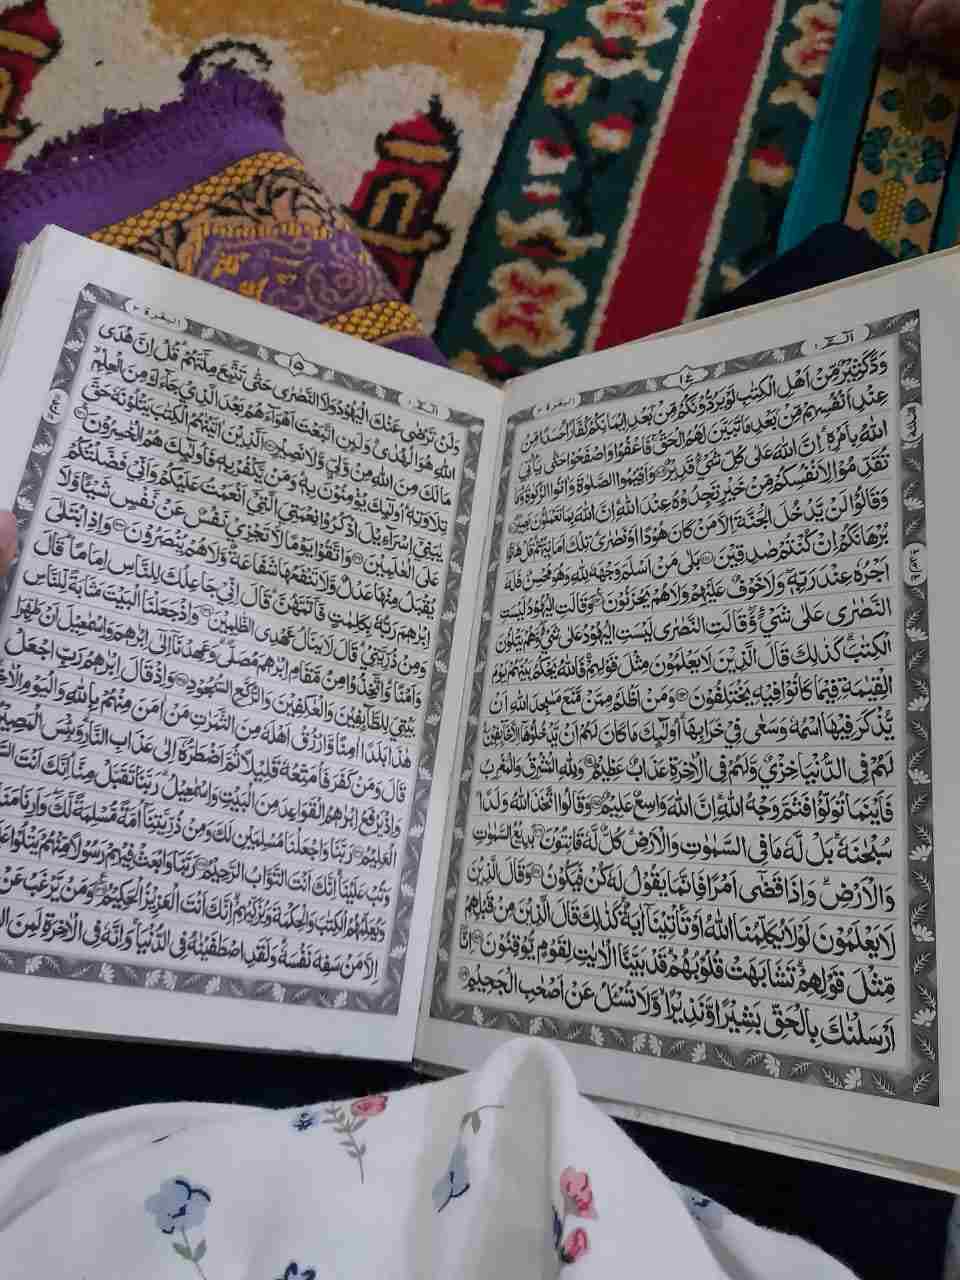 الٓمّٓ ١ ١٤ البقرة ٢
وَدَّ كَثِيْرٌ مِّنْ اَهْلِ الْكِتٰبِ لَوْ يَرُدُّوْنَكُمْ مِّنْۢ بَعْدِ اِيْمَانِكُمْ كُفَّارًا حَسَدًا مِّنْ
عِنْدِ اَنْفُسِهِمْ مِّنْۢ بَعْدِ مَا تَبَيَّنَ لَهُمُ الْحَقُّ فَاعْفُوْا وَاصْفَحُوْا حَتّٰى يَاْتِيَ
اللّٰهُ بِاَمْرِهٖ اِنَّ اللّٰهَ عَلٰى كُلِّ شَيْءٍ قَدِيْرٌ وَاَقِيْمُوا الصَّلٰوةَ وَاٰتُوا الزَّكٰوةَ وَمَا
تُقَدِّمُوْا لِاَنْفُسِكُمْ مِّنْ خَيْرٍ تَجِدُوْهُ عِنْدَ اللّٰهِ اِنَّ اللّٰهَ بِمَا تَعْمَلُوْنَ بَصِيْرٌ
وَقَالُوْا لَنْ يَّدْخُلَ الْجَنَّةَ اِلَّا مَنْ كَانَ هُوْدًا اَوْ نَصٰرٰى تِلْكَ اَمَانِيُّهُمْ قُلْ هَاتُوْا
بُرْهَانَكُمْ اِنْ كُنْتُمْ صٰدِقِيْنَ بَلٰى مَنْ اَسْلَمَ وَجْهَهٗ لِلّٰهِ وَهُوَ مُحْسِنٌ فَلَهٗٓ
اَجْرُهٗ عِنْدَ رَبِّهٖ وَلَا خَوْفٌ عَلَيْهِمْ وَلَا هُمْ يَحْزَنُوْنَ وَقَالَتِ الْيَهُوْدُ لَيْسَتِ
النَّصٰرٰى عَلٰى شَيْءٍ وَّقَالَتِ النَّصٰرٰى لَيْسَتِ الْيَهُوْدُ عَلٰى شَيْءٍ وَّهُمْ يَتْلُوْنَ
الْكِتٰبَ كَذٰلِكَ قَالَ الَّذِيْنَ لَا يَعْلَمُوْنَ مِثْلَ قَوْلِهِمْ فَاللّٰهُ يَحْكُمُ بَيْنَهُمْ يَوْمَ
الْقِيٰمَةِ فِيْمَا كَانُوْا فِيْهِ يَخْتَلِفُوْنَ وَمَنْ اَظْلَمُ مِمَّنْ مَّنَعَ مَسٰجِدَ اللّٰهِ اَنْ
يُّذْكَرَ فِيْهَا اسْمُهٗ وَسَعٰى فِيْ خَرَابِهَا اُولٰٓئِكَ مَا كَانَ لَهُمْ اَنْ يَّدْخُلُوْهَآ اِلَّا خَآئِفِيْنَ
لَهُمْ فِي الدُّنْيَا خِزْيٌ وَّلَهُمْ فِي الْاٰخِرَةِ عَذَابٌ عَظِيْمٌ وَلِلّٰهِ الْمَشْرِقُ وَالْمَغْرِبُ
فَاَيْنَمَا تُوَلُّوْا فَثَمَّ وَجْهُ اللّٰهِ اِنَّ اللّٰهَ وَاسِعٌ عَلِيْمٌ وَقَالُوا اتَّخَذَ اللّٰهُ وَلَدًا
سُبْحٰنَهٗ بَلْ لَّهٗ مَا فِي السَّمٰوٰتِ وَالْاَرْضِ كُلٌّ لَّهٗ قَانِتُوْنَ بَدِيْعُ السَّمٰوٰتِ
وَالْاَرْضِ وَاِذَا قَضٰٓى اَمْرًا فَاِنَّمَا يَقُوْلُ لَهٗ كُنْ فَيَكُوْنُ وَقَالَ الَّذِيْنَ
لَا يَعْلَمُوْنَ لَوْلَا يُكَلِّمُنَا اللّٰهُ اَوْ تَاْتِيْنَآ اٰيَةٌ كَذٰلِكَ قَالَ الَّذِيْنَ مِنْ قَبْلِهِمْ
مِّثْلَ قَوْلِهِمْ تَشَابَهَتْ قُلُوْبُهُمْ قَدْ بَيَّنَّا الْاٰيٰتِ لِقَوْمٍ يُّوْقِنُوْنَ اِنَّآ
اَرْسَلْنٰكَ بِالْحَقِّ بَشِيْرًا وَّنَذِيْرًا وَّلَا تُسْـَٔلُ عَنْ اَصْحٰبِ الْجَحِيْمِ
الٓمّٓ ١ ١٥ البقرة ٢
وَلَنْ تَرْضٰى عَنْكَ الْيَهُوْدُ وَلَا النَّصٰرٰى حَتّٰى تَتَّبِعَ مِلَّتَهُمْ قُلْ اِنَّ هُدَى
اللّٰهِ هُوَ الْهُدٰى وَلَئِنِ اتَّبَعْتَ اَهْوَآءَهُمْ بَعْدَ الَّذِيْ جَآءَكَ مِنَ الْعِلْمِ
مَا لَكَ مِنَ اللّٰهِ مِنْ وَّلِيٍّ وَّلَا نَصِيْرٍ اَلَّذِيْنَ اٰتَيْنٰهُمُ الْكِتٰبَ يَتْلُوْنَهٗ حَقَّ
تِلَاوَتِهٖ اُولٰٓئِكَ يُؤْمِنُوْنَ بِهٖ وَمَنْ يَّكْفُرْ بِهٖ فَاُولٰٓئِكَ هُمُ الْخٰسِرُوْنَ
يٰبَنِيْٓ اِسْرَآءِيْلَ اذْكُرُوْا نِعْمَتِيَ الَّتِيْٓ اَنْعَمْتُ عَلَيْكُمْ وَاَنِّيْ فَضَّلْتُكُمْ
عَلَى الْعٰلَمِيْنَ وَاتَّقُوْا يَوْمًا لَّا تَجْزِيْ نَفْسٌ عَنْ نَّفْسٍ شَيْـًٔا وَّلَا
يُقْبَلُ مِنْهَا عَدْلٌ وَّلَا تَنْفَعُهَا شَفَاعَةٌ وَّلَا هُمْ يُنْصَرُوْنَ وَاِذِ ابْتَلٰٓى
اِبْرٰهٖمَ رَبُّهٗ بِكَلِمٰتٍ فَاَتَمَّهُنَّ قَالَ اِنِّيْ جَاعِلُكَ لِلنَّاسِ اِمَامًا قَالَ
وَمِنْ ذُرِّيَّتِيْ قَالَ لَا يَنَالُ عَهْدِي الظّٰلِمِيْنَ وَاِذْ جَعَلْنَا الْبَيْتَ مَثَابَةً لِّلنَّاسِ
وَاَمْنًا وَاتَّخِذُوْا مِنْ مَّقَامِ اِبْرٰهٖمَ مُصَلًّى وَعَهِدْنَآ اِلٰٓى اِبْرٰهٖمَ وَاِسْمٰعِيْلَ اَنْ طَهِّرَا
بَيْتِيَ لِلطَّآئِفِيْنَ وَالْعٰكِفِيْنَ وَالرُّكَّعِ السُّجُوْدِ وَاِذْ قَالَ اِبْرٰهٖمُ رَبِّ اجْعَلْ
هٰذَا بَلَدًا اٰمِنًا وَّارْزُقْ اَهْلَهٗ مِنَ الثَّمَرٰتِ مَنْ اٰمَنَ مِنْهُمْ بِاللّٰهِ وَالْيَوْمِ
قَالَ وَمَنْ كَفَرَ فَاُمَتِّعُهٗ قَلِيْلًا ثُمَّ اَضْطَرُّهٗٓ اِلٰى عَذَابِ النَّارِ وَبِئْسَ الْمَصِيْرُ
وَاِذْ يَرْفَعُ اِبْرٰهٖمُ الْقَوَاعِدَ مِنَ الْبَيْتِ وَاِسْمٰعِيْلُ رَبَّنَا تَقَبَّلْ مِنَّا اِنَّكَ اَنْتَ
الْعَلِيْمُ رَبَّنَا وَاجْعَلْنَا مُسْلِمَيْنِ لَكَ وَمِنْ ذُرِّيَّتِنَآ اُمَّةً مُّسْلِمَةً لَّكَ وَاَرِنَا
وَتُبْ عَلَيْنَا اِنَّكَ اَنْتَ التَّوَّابُ الرَّحِيْمُ رَبَّنَا وَابْعَثْ فِيْهِمْ رَسُوْلًا مِّنْهُمْ يَتْلُوْا
وَيُعَلِّمُهُمُ الْكِتٰبَ وَالْحِكْمَةَ وَيُزَكِّيْهِمْ اِنَّكَ اَنْتَ الْعَزِيْزُ الْحَكِيْمُ وَمَنْ يَّرْغَبُ عَنْ
اِلَّا مَنْ سَفِهَ نَفْسَهٗ وَلَقَدِ اصْطَفَيْنٰهُ فِي الدُّنْيَا وَاِنَّهٗ فِي الْاٰخِرَةِ لَمِنَ